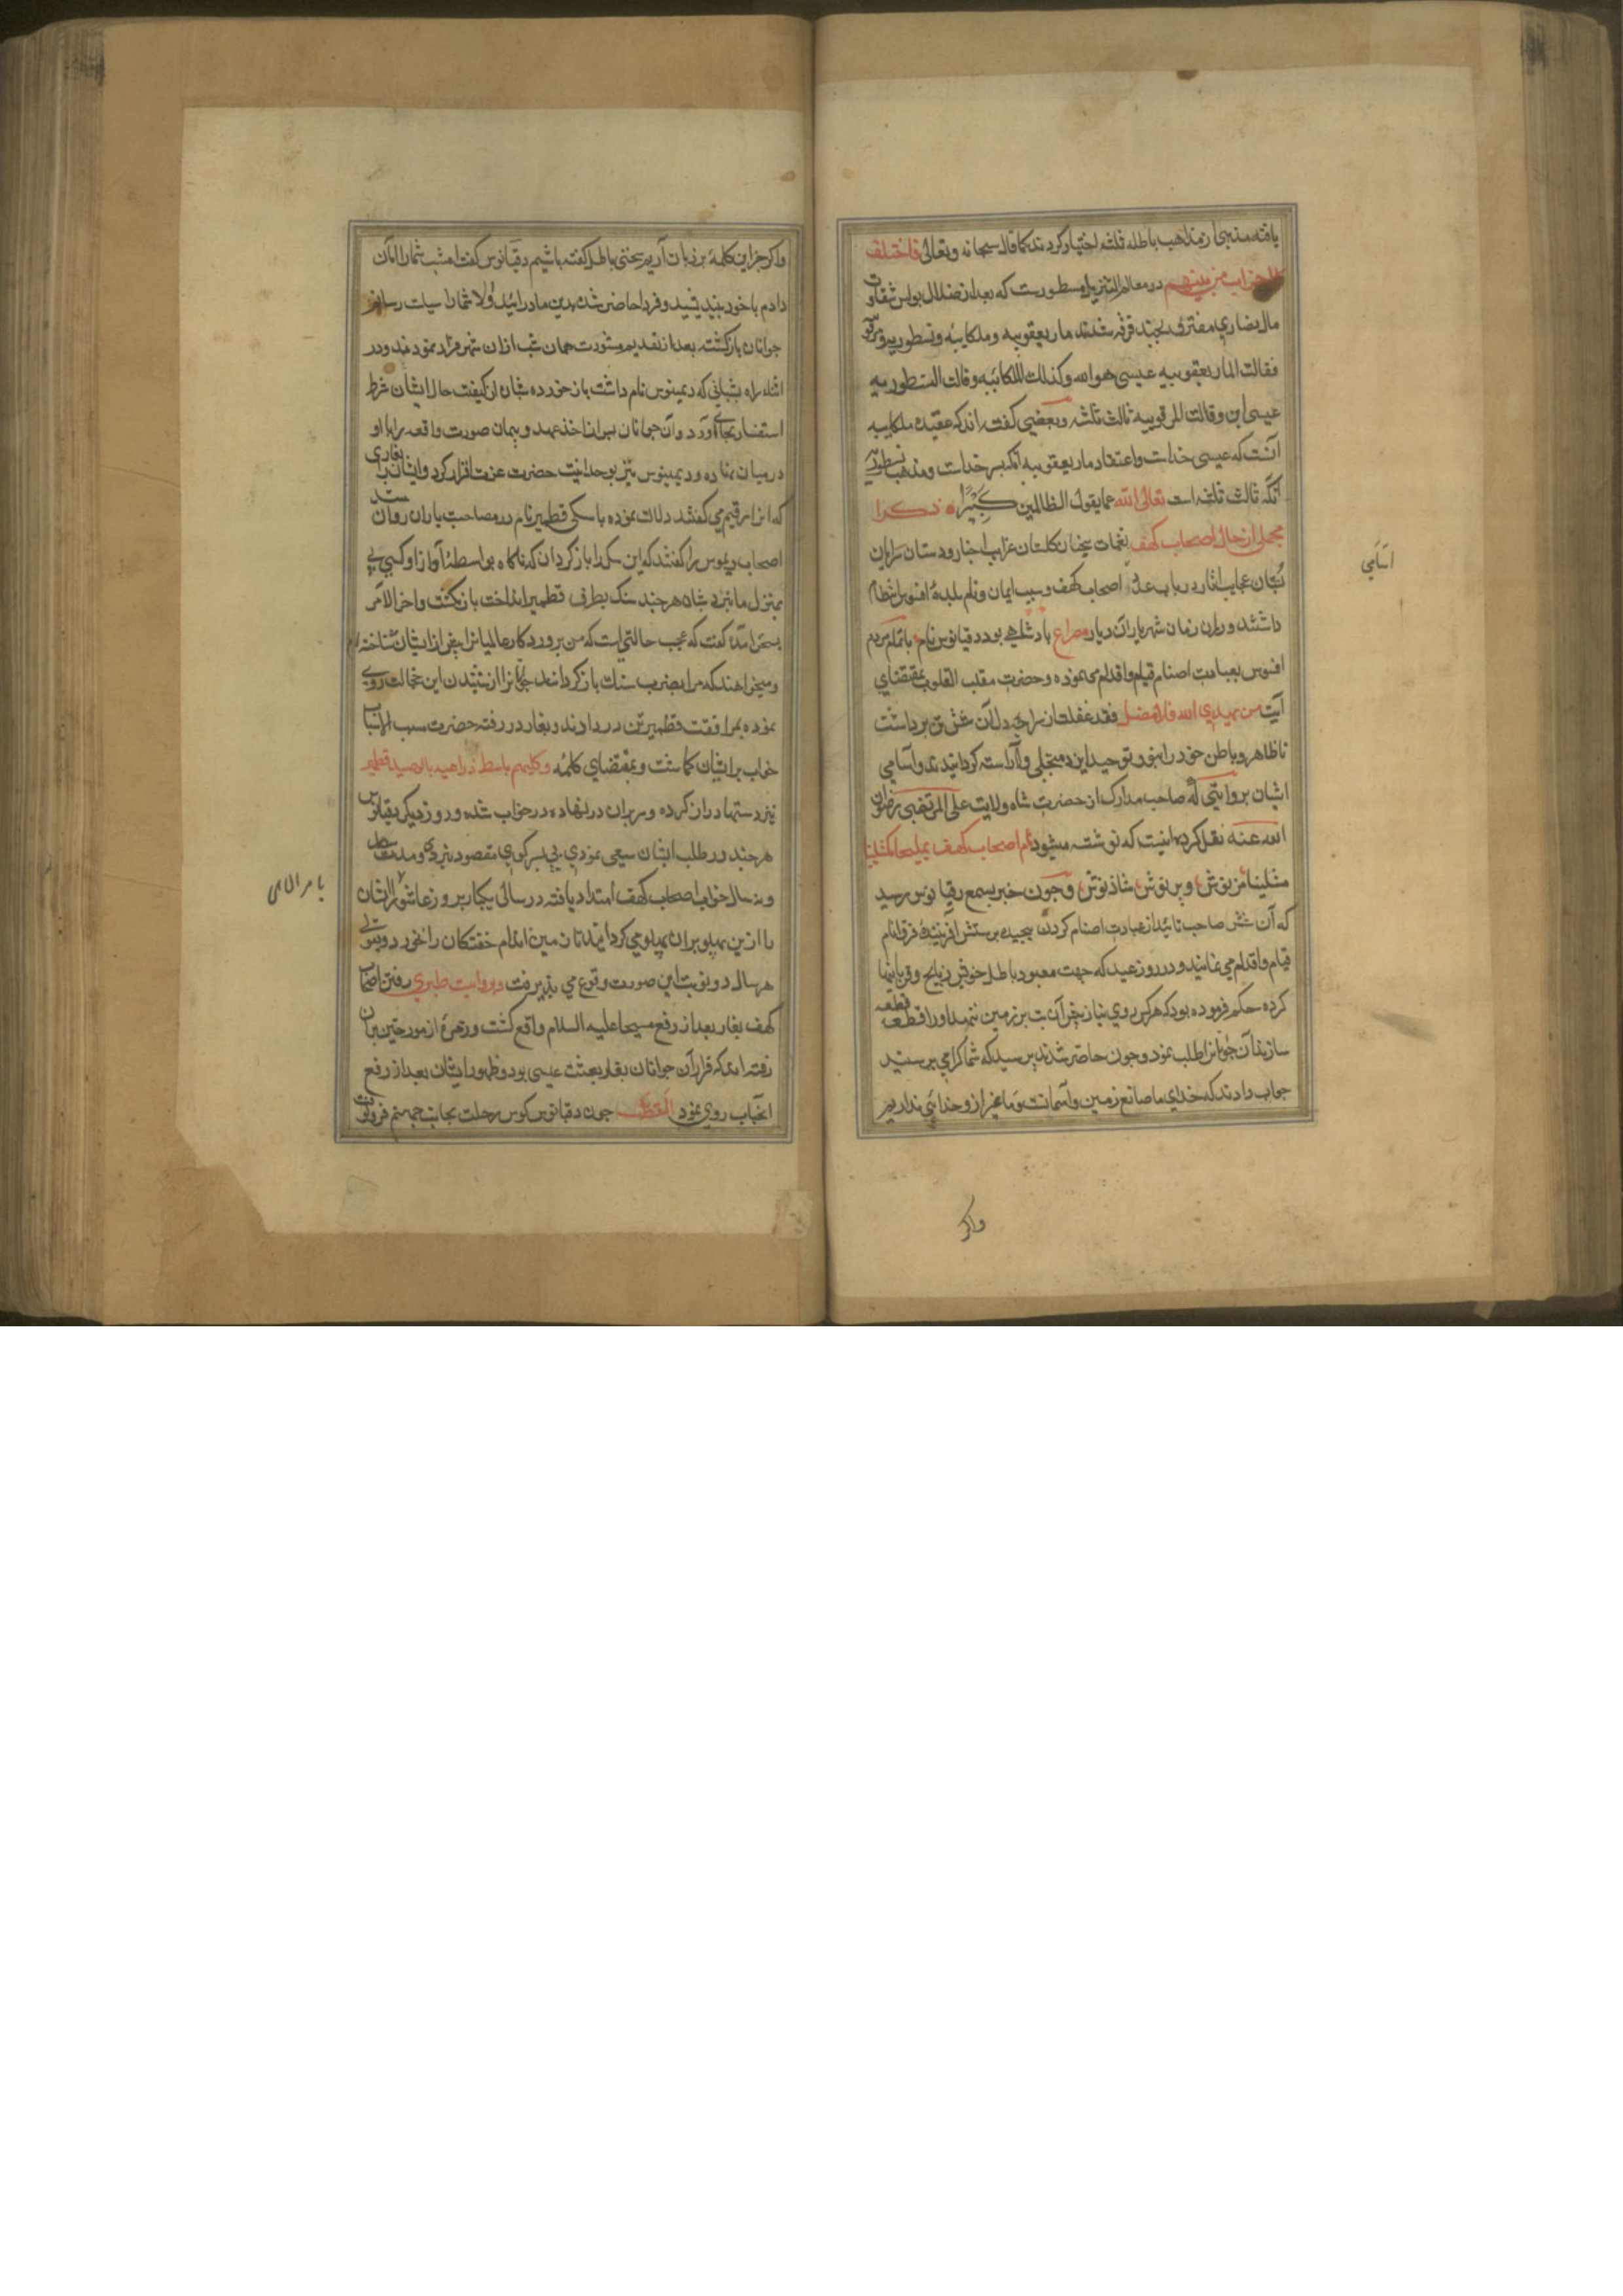 یافته مذهبی از مذاهب باطله ثلثه اختیار کردند کما قال سبحانه وتعالی فاختلف
الاحزاب من بینهم در معالم التنزیل مسطورست که بعد از ضلال بولس شقاوت
مال نصاری مفترق بچند فرقه شدند مار یعقوبیه وملکاییه ونسطوریه ومرقوسیه
فقالت المار یعقوبیه عیسی هو الله وکذلک الملکائیه وقالت النسطوریه
عیسی ابن وقالت المرقوبیه ثالث ثلثه وبعضی کفته اند که عقیده ملکاییه
آنست که عیسی خداست واعتقاد مار یعقوبیه آنکه پسر خداست ومذهب نسطوریه
آنکه ثالث ثلثه است تعالی الله عما یقول الظالمین کبیرا ذکر
مجملی از حال اصحاب کهف نغمات سنجان کلستان غرایب اخبار ودستان سرایان
بستان عجایب آثار در باب عدد اصحاب کهف وسبب ایمان ونام بلدهٔ افسوس انتظام
داشتند ودران زمان شهریار آن دیار مصراع بادشاهی بود دقیانوس نام با تمام مردم
افسوس بعبادت اصنام قیام واقدام می نموده وحضرت مقلب القلوب بمقتضای
آیت من یهدی الله فلا مضل فقد غفلت از سراچه دل آن شش تن برداشت
تا ظاهر وباطن خود را بنور توحید ایزد متجلی وآراسته کردانیدند واسامی
ایشان بروایتی که صاحب مدارک از حضرت شاه ولایت علی المرتضی رضوان
الله عنه نقل کرده اینست که نوشته میشود نام اصحاب کهف یملیخا مکثلینا
مثلینا مرنوش وبرنوش شاذنوش وچون خبر بسمع دقیانوس رسید
که آن شش صاحب تائید از عبادت اصنام کردن بیچیده برستش آفرینندهٔ فرق انام
قیام واقدام می نمایند ودر روز عید که جهت معبود باطل خویش ذبایح وقربانیها
کرده حکم فرموده بود که هرکس روی نیاز پیش آن بت بر زمین ننهد او را قطعه قطعه
سازند آن جوانانرا طلب نمود وچون حاضر شدند پرسید که شما کرا می پرستید
جواب دادند که خدای ما صانع زمین وآسمانست وما غیر از وخدائی نداریم
واکر
اسامی
واکر جز این کلمه بر زبان آریم سخنی باطل کفته باشیم دقیانوس کفت امشب شما را امان
دادم با خود بیندیشید وفردا حاضر شده بدین ما درآئید والا شما را سیاست رسانم
جوانان بازکشته بعد از تقدیم مشورت همان شب ازان شهر فرار نمودند ودر
اثناء راه بشبانی که دیمینوس نام داشت باز خورده شبان از کیفیت حال ایشان شرط
استفسار بجای آورد وآن جوانان پس از اخذ عهد وپیمان صورت واقعه را با او
درمیان نهاده ودیمینوس نیز بوحدانیت حضرت عزت اقرار کرد وایشانرا بغاری
که انرا رقیم می کفتند دلالت نموده با سکی قطمیر نام در مصاحبت یاران روان شد
اصحاب دیموس را کفتند که این سک را باز کردان که ناکاه بواسطهٔ آواز او کسی پی
بمنزل ما نبرد شبان هرچند سنک بطرف قطمیر انداخت باز نکشت واخر الامر
بسخن آمد کفت که عجب حالتی است که من پروردکار عالمیانرا پیش از ایشان شناخته ام
ومیخواهند که مرا بضرب سنک باز کردانند جوانانرا از شنیدن این خجالت روی
نموده بمرافقت قطمیر تن در دادند وبغار در رفته حضرت مسبب الاسباب
خواب بر ایشان کماشت وبمقتضای کلمه وکلبهم باسط ذراعیه بالوصید قطمیر
نیز دستها دراز کرده وسر بران نهاده در خواب شده وروز دیکر دقیانوس
هرچند در طلب ایشان سعی نمودی پی بسر کوی مقصود نبردی ومدت سیصد
ونه سال خواب اصحاب کهف امتداد یافته در سالی یکبار بروز عاشورا ایشان
را از ین پهلو بران پهلو می کردانیدند تا زمین اندام خفتکان را نخورد وبقولی
هر سال دو نوبت این صورت وقوع می پذیرفت وبروایت طبری رفتن اصحاب
کهف بغار بعد از رفع مسیحا علیه السلام واقع کشت وزمرهٔ از مورخین بران
رفته اند که فرار آن جوانان بغار بعثت عیسی بود وظهور ایشان بعد از رفع
آنجناب روی نمود القصه چون دقیانوس کوس رحلت بجانب جهنم فرو کوفت